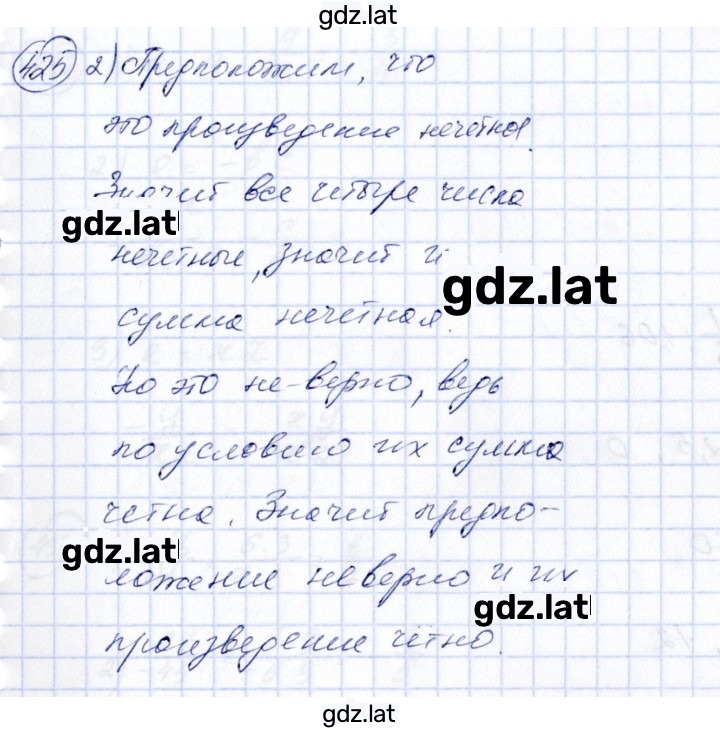 gdz.lat
425 2) Предположим, что
это произведение нечетное.
Значит все четыре числа
gdz.lat
нечетные, значит и
gdz.lat
сумма нечетная.
Но это не-верно, ведь
по условию их сумма
четна. Значит предпо-
gdz.lat
ложение неверно и их
gdz.lat
произведение чётно.
gdz.lat